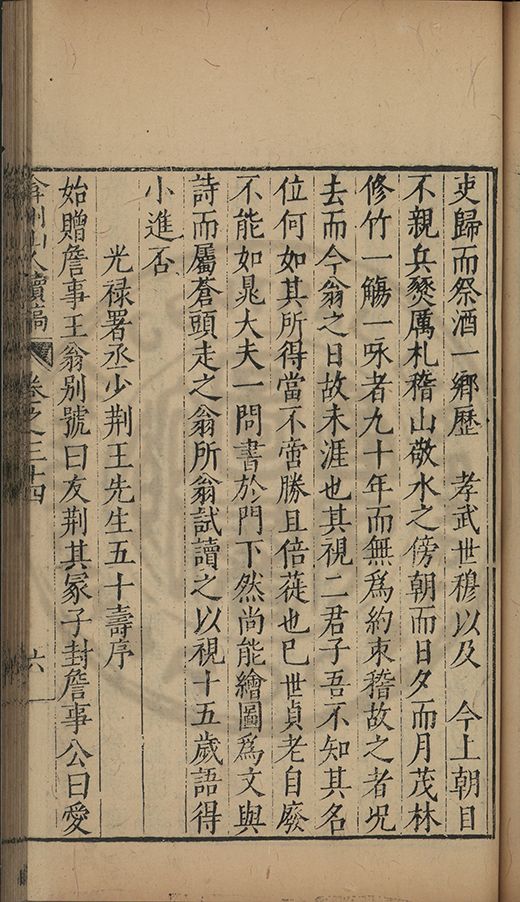 吏歸而祭酒一鄉歷　孝武世穆以及　今上朝目
不親兵燹厲札稽山敬水之傍朝而日夕而月茂林
修竹一觴一咏者九十年而無爲約束稽故之者呪
去而今翁之日故未涯也其視二君子吾不知其名
位何如其所得當不啻勝且倍蓗也已世貞老自廢
不能如晁大夫一問書於門下然尚能繪圖爲文與
詩而屬蒼頭走之翁所翁試讀之以視十五歲語得
小進否
光禄署丞少荆王先生五十壽序
始贈詹事王翁别號曰友荆其冡子封詹事公曰愛
弇州山人續稿　卷之三十四　六